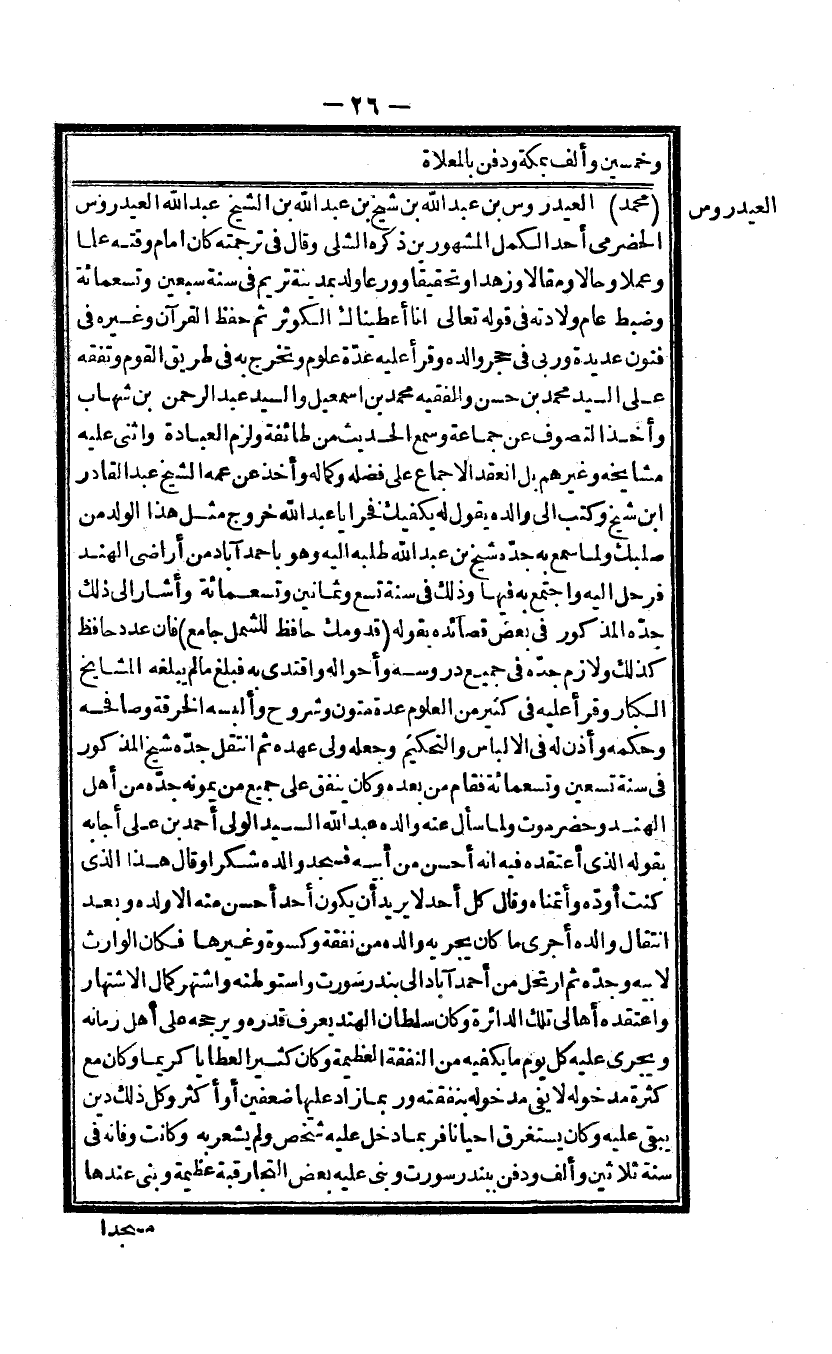 — ٢٦ —
وخمسين وألف بمكة ودفن بالمعلاة
العيدروس
(محمد) العيدروس بن عبدالله بن شيخ بن عبدالله بن الشيخ عبدالله العيدروس
الحضرمى أحد الكمل المشهورين ذكره الشلى وقال فى ترجمته كان امام وقته علما
وعملا وحالا ومقالا وزهدا وتحقيقا وورعا ولد بمدينة تريم فى سنة سبعين وتسعمائة
وضبط عام ولادته فى قوله تعالى انا أعطيناك الكوثر ثم حفظ القرآن وغيره فى
فنون عديدة وربى فى حجر والده وقرأ عليه عدّة علوم وتخرج به فى طريق القوم وتفقه
على السيد محمد بن حسن والفقيه محمد بن اسمعيل والسيد عبد الرحمن بن شهاب
وأخذ التصوف عن جماعة وسمع الحديث من طائفة ولزم العبادة واثنى عليه
مشايخه وغيرهم بل انعقد الاجماع على فضله وكماله وأخذ عن عمه الشيخ عبد القادر
ابن شيخ وكتب الى والده يقول له يكفيك فخرا يا عبدالله خروج مثل هذا الولد من
صلبك ولما سمع به جدّه شيخ بن عبدالله طلبه اليه وهو باحمدآباد من أراضى الهند
فرحل اليه واجتمع به فيها وذلك فى سنة تسع وثمانين وتسعمائة وأشار الى ذلك
جدّه المذكور فى بعض قصائده بقوله (قدومك حافظ للشمل جامع) فان عدد حافظ
كذلك ولازم جدّه فى جميع دروسه وأحواله واقتدى به فبلغ مالم يبلغه المشايخ
الكبار وقرأ عليه فى كثير من العلوم عدة متون وشروح وألبسه الخرقة وصافحه
وحكمه وأذن له فى الالباس والتحكيم وجعله ولى عهده ثم انتقل جدّه شيخ المذكور
فى سنة تسعين وتسعمائة فقام من بعده وكان ينفق على جميع من يمونه جدّه من أهل
الهند وحضرموت ولما سأل عنه والده عبدالله السيد الولى أحمد بن على أجابه
بقوله الذى أعتقده فيه انه أحسن من أبيه فسجد والده شكرا وقال هذا الذى
كنت أودّه وأتمناه وقال كل أحد لا يريد أن يكون أحد أحسن منه الا ولده وبعد
انتقال والده أجرى ما كان يجريه والده من نفقة وكسوة وغيرها فكان الوارث
لابيه وجدّه ثم ارتحل من أحمدآباد الى بندر سورت واستوطنه واشتهر كمال الاشتهار
واعتقده أهالى تلك الدائرة وكان سلطان الهند يعرف قدره ويرجحه على أهل زمانه
ويجرى عليه كل يوم ما يكفيه من النفقة العظيمة وكان كثير العطايا كريما وكان مع
كثرة مدخوله لا يفى مدخوله بنفقته وربما زاد عليها ضعفين أو أكثر وكل ذلك دين
يبقى عليه وكان يستغرق احيانا فربما دخل عليه شخص ولم يشعر به وكانت وفاته فى
سنة ثلاثين وألف ودفن ببندر سورت وبنى عليه بعض التجار قبة عظيمة وبنى عندها
مسجدا